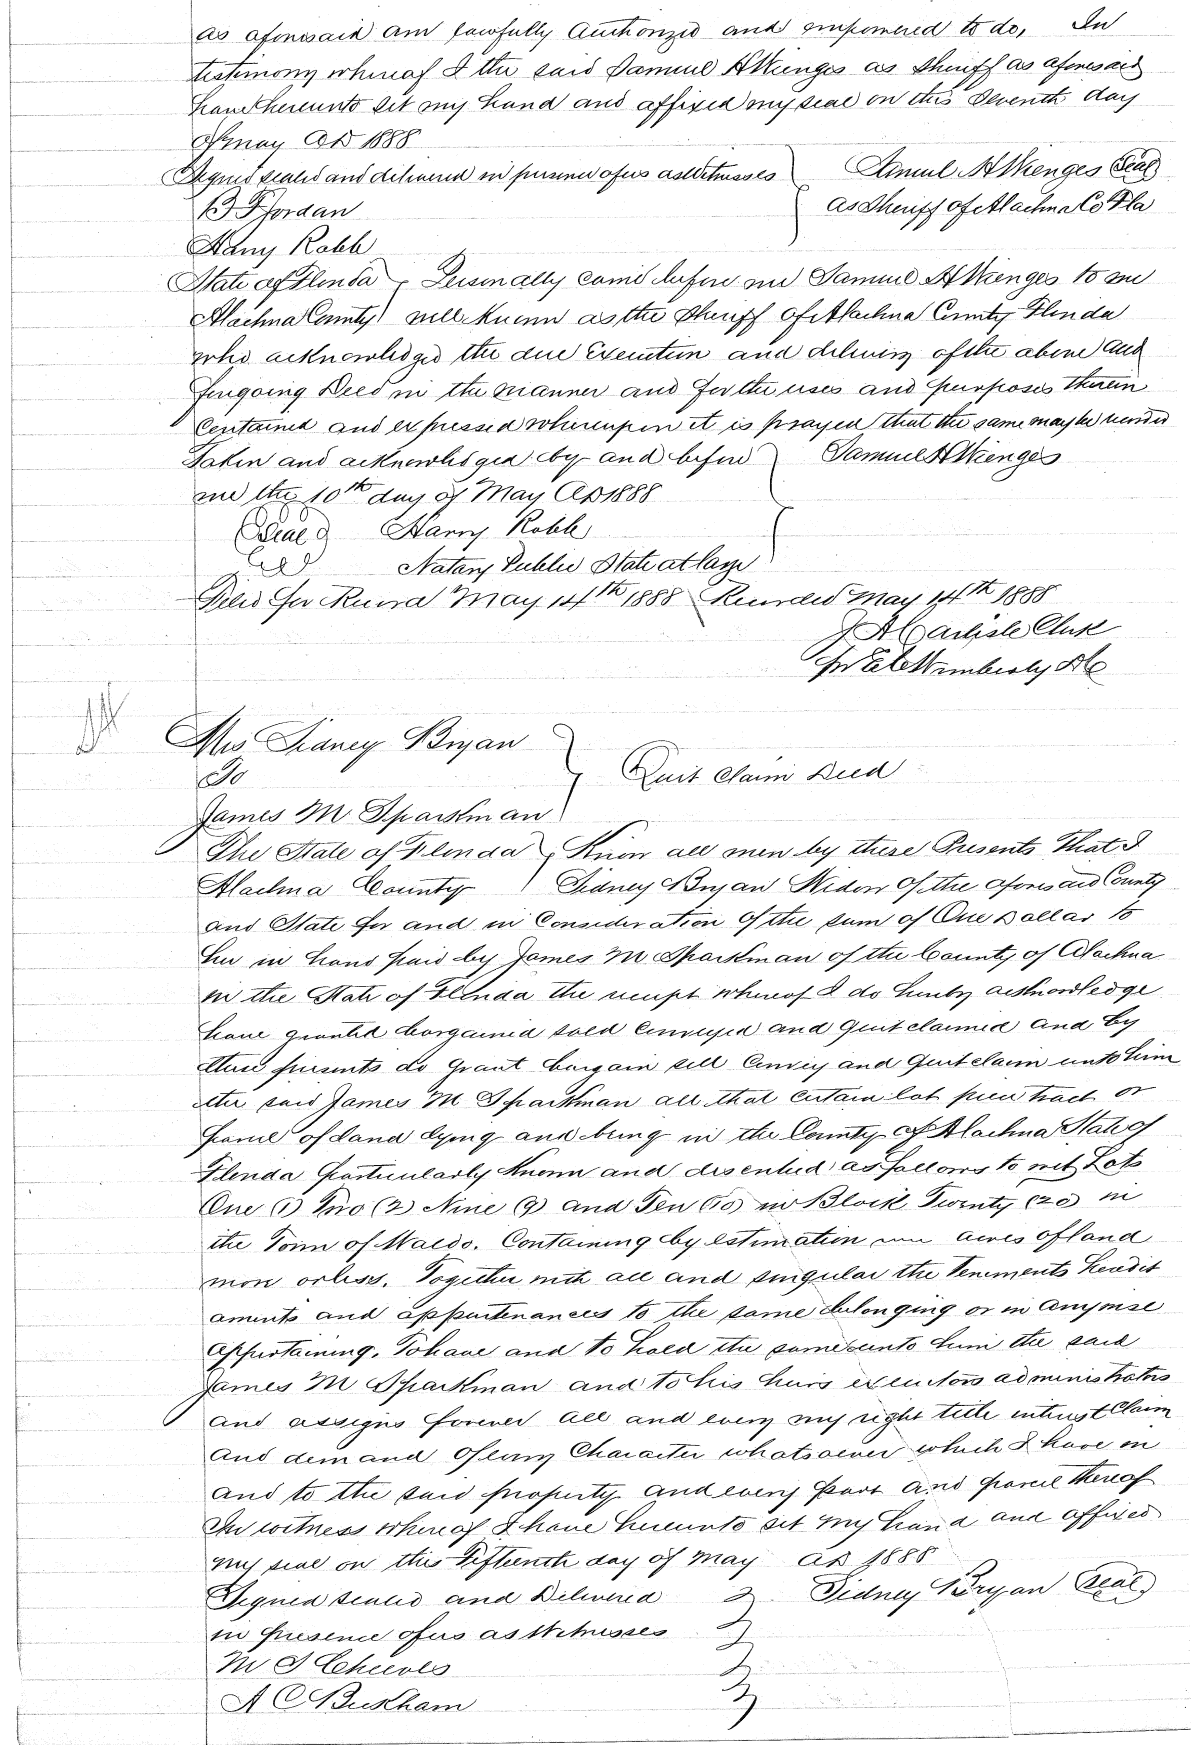 as aforesaid am lawfully Authorized and empowered to do, In
testimony whereof I the said Samuel H Wienges as Sheriff as aforesaid
have hereunto set my hand and affixed my seal on this Seventh day
of may AD 1888
Signed sealed and delivered in presence of us as Witnesses Samuel H Wienges Seal
B F Jordan as Sheriff of Alachua Co Fla
Harry Robb
State of Florida Personally came before me Samuel H Wienges to me
Alachua County well Known as the Sheriff of Alachua County Florida
who acknowledged the due Execution and delivery of the above and
foregoing Deed in the manner and for the uses and purposes therein
Contained and expressed whereupon it is prayed that the same may be recorded
Taken and acknowledged by and before Samuel H Wienges
me the 10th day of May AD 1888
Seal Harry Robb
Notary Public State at large
Filed for Record May 14th 1888 Recorded May 14th 1888
J A Carlisle Clerk
Wimberly DC
Mrs Sidney Bryan
To Quit Claim Deed
James M Sparkman
The State of Florida Know all men by these Presents That I
Alachua County Sidney Bryan Widow of the aforesaid County
and State for and in Consideration of the sum of One Dollar to
her in hand paid by James M Sparkman of the County of Alachua
in the State of Florida the receipt whereof I do hereby acknowledge
have granted bargained sold Conveyed and Quit claimed and by
these presents do grant bargain sell Convey and Quit claim unto him
the said James M Sparkman all that certain lot piece tract or
parcel of land lying and being in the County of Alachua State of
Florida Particularly Known and described as follows to wit Lots
One (1) Two (2) Nine (9) and Ten (10) in Block Twenty (20) in
the Town of Waldo. Containing by estimation acres of land
more or less. Together with all and singular the Tenements heredit
aments and appurtenances to the same belonging or in anywise
appertaining. To have and to hold the same unto him the said
James M Sparkman and to his heirs executors administrators
and assigns forever all and every my right title interest Claim
and demand of every Character whatsoever which I have in
and to the said property and every part and parcel thereof
In witness whereof I have hereunto set my hand and affixed
my seal on this Fifteenth day of May AD 1888
Signed sealed and Delivered Sidney Bryan Seal
in presence of us as Witnesses
M S Cheeves
A C Buckham